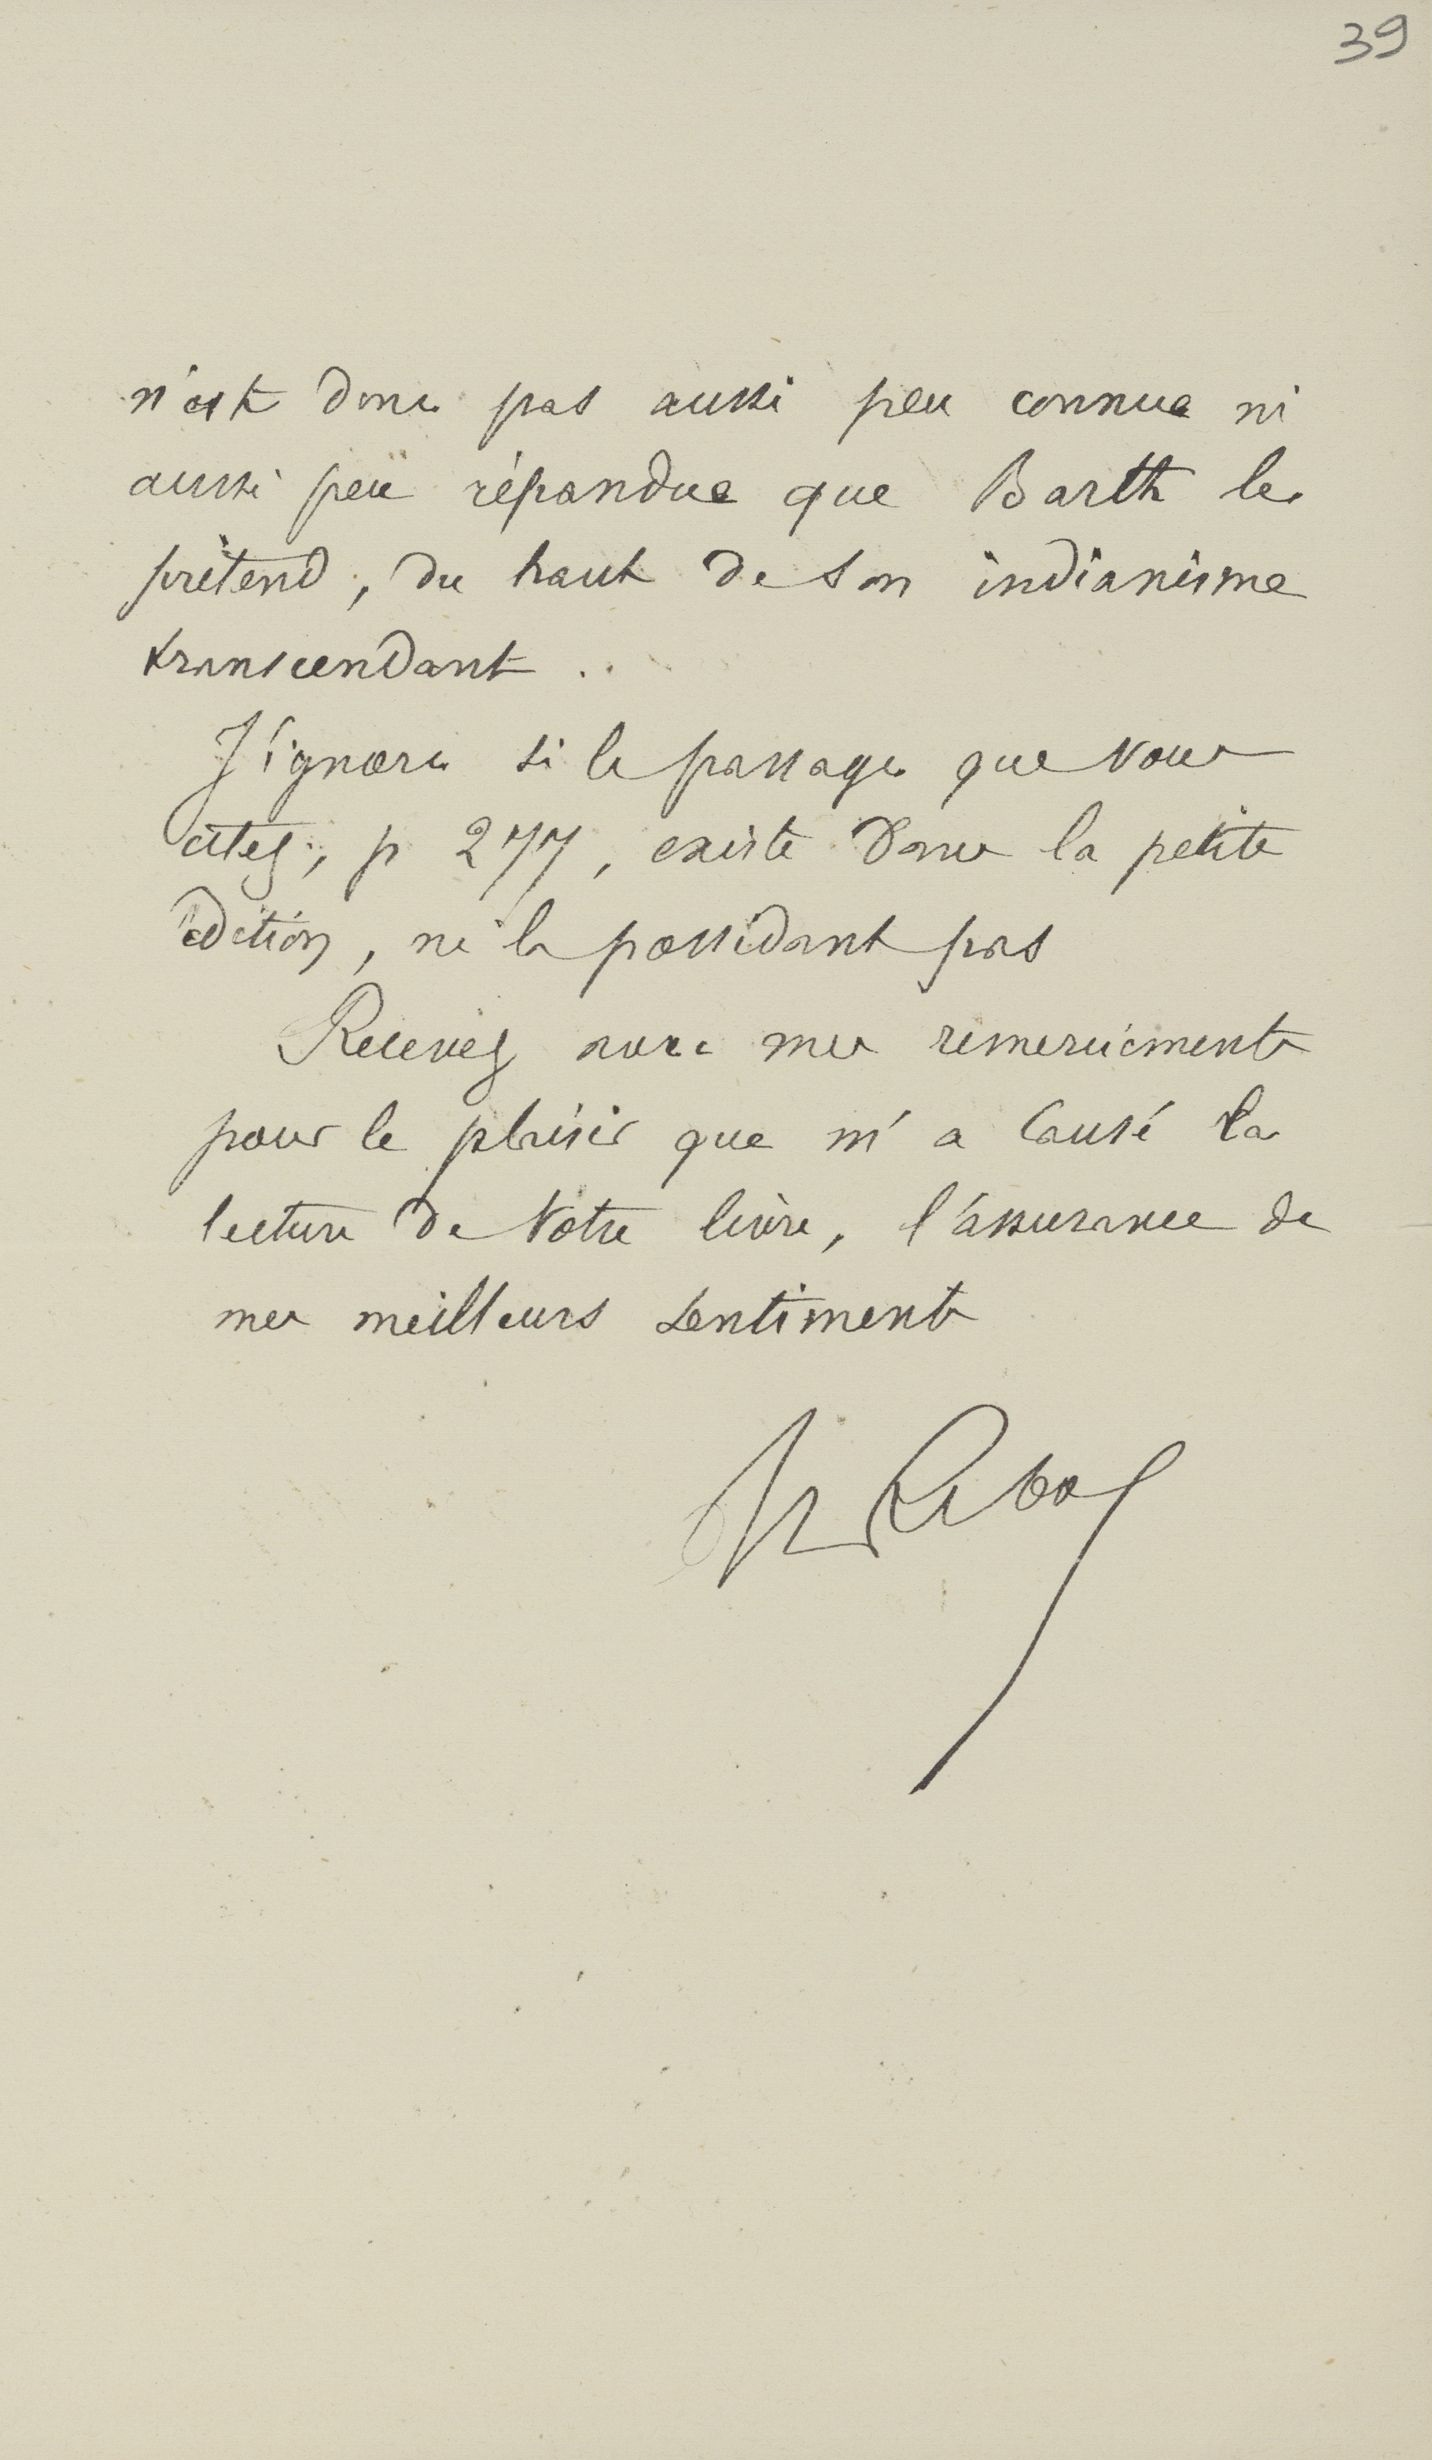 39
n'est donc pas aussi peu connue ni
aussi peu répandue que Barth le
prétend, du haut de son indianisme
transcendant..
J'ignore si le passage que vous
citez, p 277, existe dans la petite
édition, ne la possédant pas
Recevez avec mes remerciments
pour le plaisir que m'a causé la
lecture de votre livre, l'assurance de
mes meilleurs sentiments